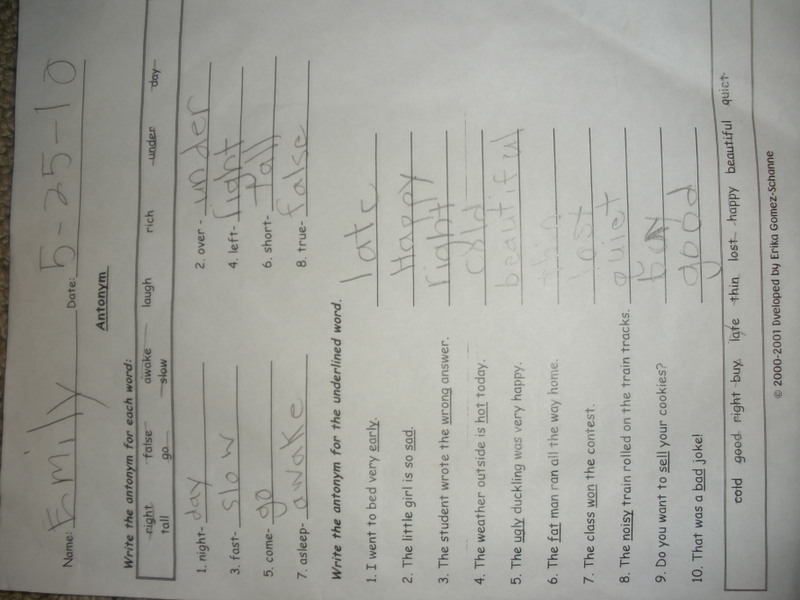 Name: Emily Date: 5-25-10
Antonym
Write the antonym for each word:
right false awake laugh rich under day
tall go slow
1. night- day 2. over - under
3. fast- slow 4. left- right
5. come- go 6. short- tall
7. asleep- awake 8. true- false
Write the antonym for the underlined word.
1. I went to bed very early. late
2. The little girl is so sad. Happy
3. The student wrote the wrong answer. right
4. The weather outside is hot today. cold
5. The ugly duckling was very happy. beautiful
6. The fat man ran all the way home. thin
7. The class won the contest. lost
8. The noisy train rolled on the train tracks. quiet
9. Do you want to sell your cookies? buy
10. That was a bad joke! good
cold good right buy late thin lost happy beautiful quiet
© 2000-2001 Dveloped by Erika Gomez-Schanne